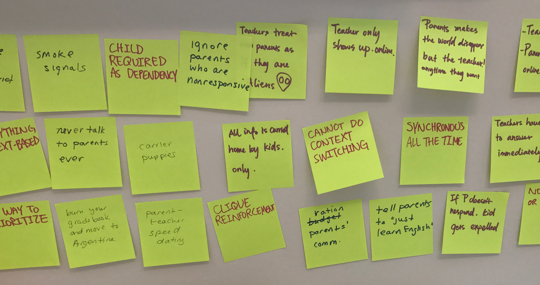 smoke
signals
CHILD
REQUIRED
AS DEPENDENCY
ignore
parents
who are
nonresponsive
Teachers treat
parents as
they are
aliens
Teacher only
shows up online.
Parents makes
the world disappear
but the teacher!
anytime they want
never talk
to parents
ever
carrier
puppies
All info is carried
home by kids.
only.
CANNOT DO
CONTEXT
SWITCHING
SYNCHRONOUS
ALL THE TIME
Teachers have
to answer
immediately
WAY TO
burn your
gradebook
and move to
Argentina
parent-
teacher
speed
dating
CLIQUE
REINFORCEMENT
ration
budget
parents'
comm.
tell parents
to "just
learn English"
If P doesn't
respond, kid
gets expelled